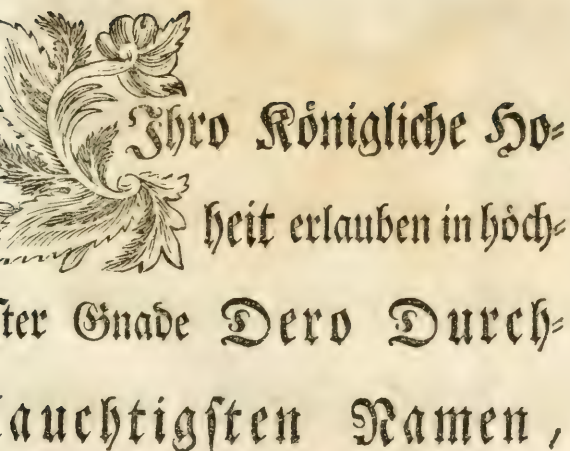 Ihro Königliche Ho⸗
heit erlauben in höch⸗
ſter Gnade Dero Durch⸗
lauchtigſten Namen,